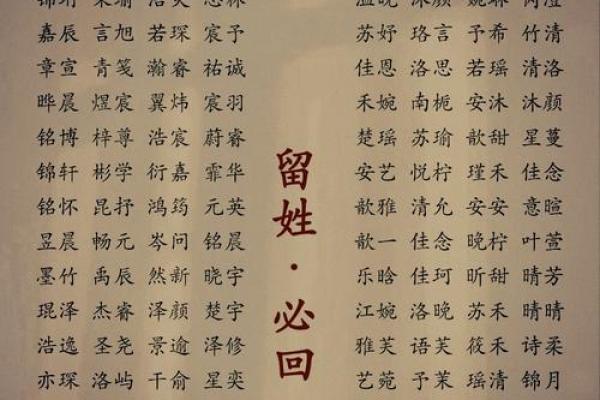 嘉辰 言旭 若琛 宸予
章宣 青笺 瀚睿 祐诚
晔晨 煜宸 翼炜 宸羽
铭博 梓尊 浩宸 蔚睿
锦轩 彬学 衍嘉 霏华
铭怀 昆抒 鸿筠 元英
昱晨 畅元 岑问 铭晨
墨竹 禹辰 然新 晓宇
琨泽 杰睿 泽颜 楚宇
浩逸 圣尧 景逾 泽修
亦琛 洛屿 干俞 星奕
留姓·必回
苏妤 珞言 予希 竹清
佳恩 洛思 若瑶 清洛
禾婉 南栀 安沐 沐颜
楚瑶 苏瑜 歆甜 星蔓
安艺 悦柠 瑾禾 佳念
歆雅 清允 安安 意暄
歆一 佳念 晚柠 叶萱
乐晗 佳珂 昕甜 晴芳
江婉 洛晚 苏禾 晴晴
雅芙 语芙 筱禾 诗柔
艺菀 予茉 瑶清 锦月